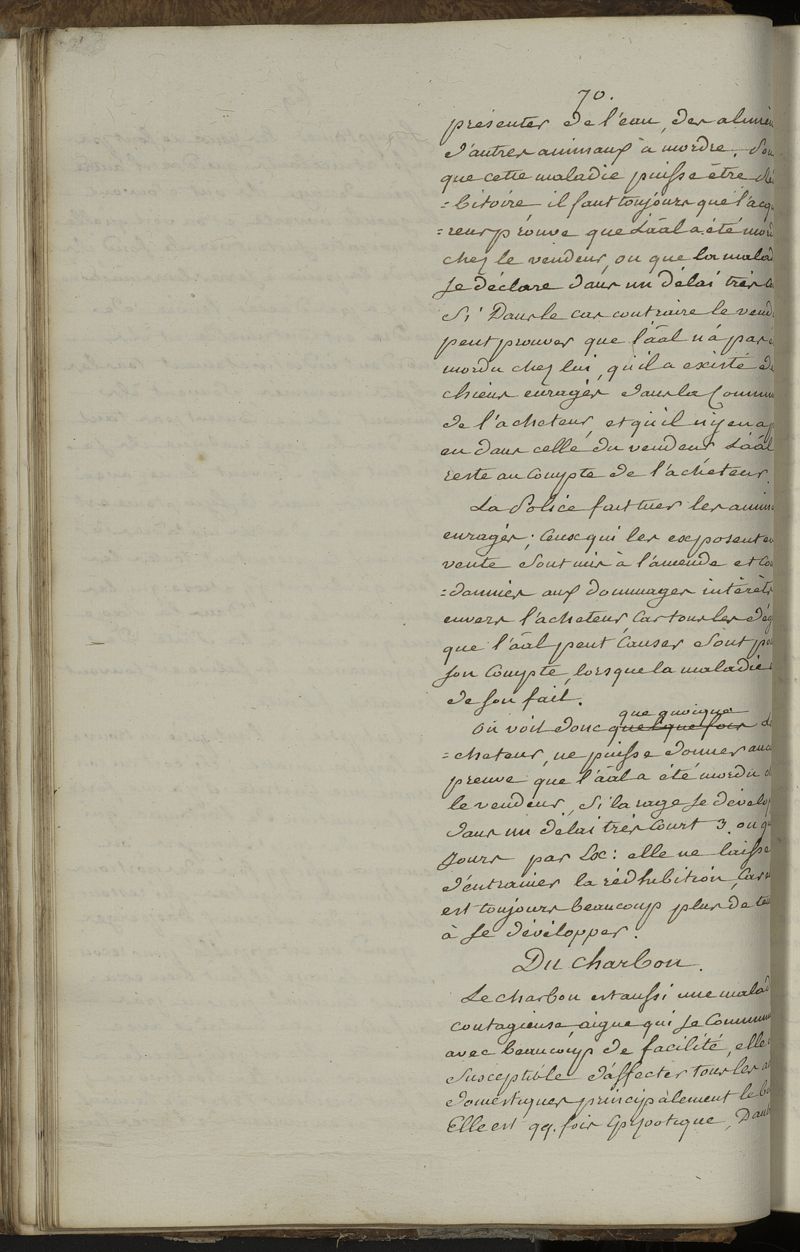 70.
présenter de l'eau, des alimen
d'autres animaux à mordre. Pou
que cette maladie puisse être ré
=bitoire il faut toujours que l'acq
=reur prouve que l'āāl a été mor
chez le vendeur, ou que la malad
se déclare dans un délai très c
Si dans le cas contraire le vend
peut prouver que l'āāl n'a pas é
mordu chez lui, qu'il a existé de
chiens enragés dans la Commu
de l'acheteur, et qu'il n'y en a p
eu dans celle du vendeur L'āāl
reste au compte de l'acheteur.
La Police fait tuer les anim
enragés; Ceux qui les exposent en
vente Sont mis à l'amende et Con
=damnés aux dommages intérêts
envers l'acheteur, Car tous les dég
que l'āāl peut Causer Sont po
son Compte, lorsque la maladie e
de son fait.
que quoique
On voit donc quelque fois
=cheteur, ne puisse donner auc
preuve que l'āāl a été mordu c
le vendeur, Si la rage se dévelo
dans un délai très Court 3. ou q
jours par Ex: elle ne laisse
d'entrainer la rédhibition, Car
est toujours beaucoup plus de te
à se développer.
Du Charbon.
Le charbon est aussi une malad
contagieuse aigue qui se Commun
avec beaucoup de facilité, elle
Susceptible d'affecter tous les a
domestiques principalement le b
Elle est qq. fois épizootique, Dan